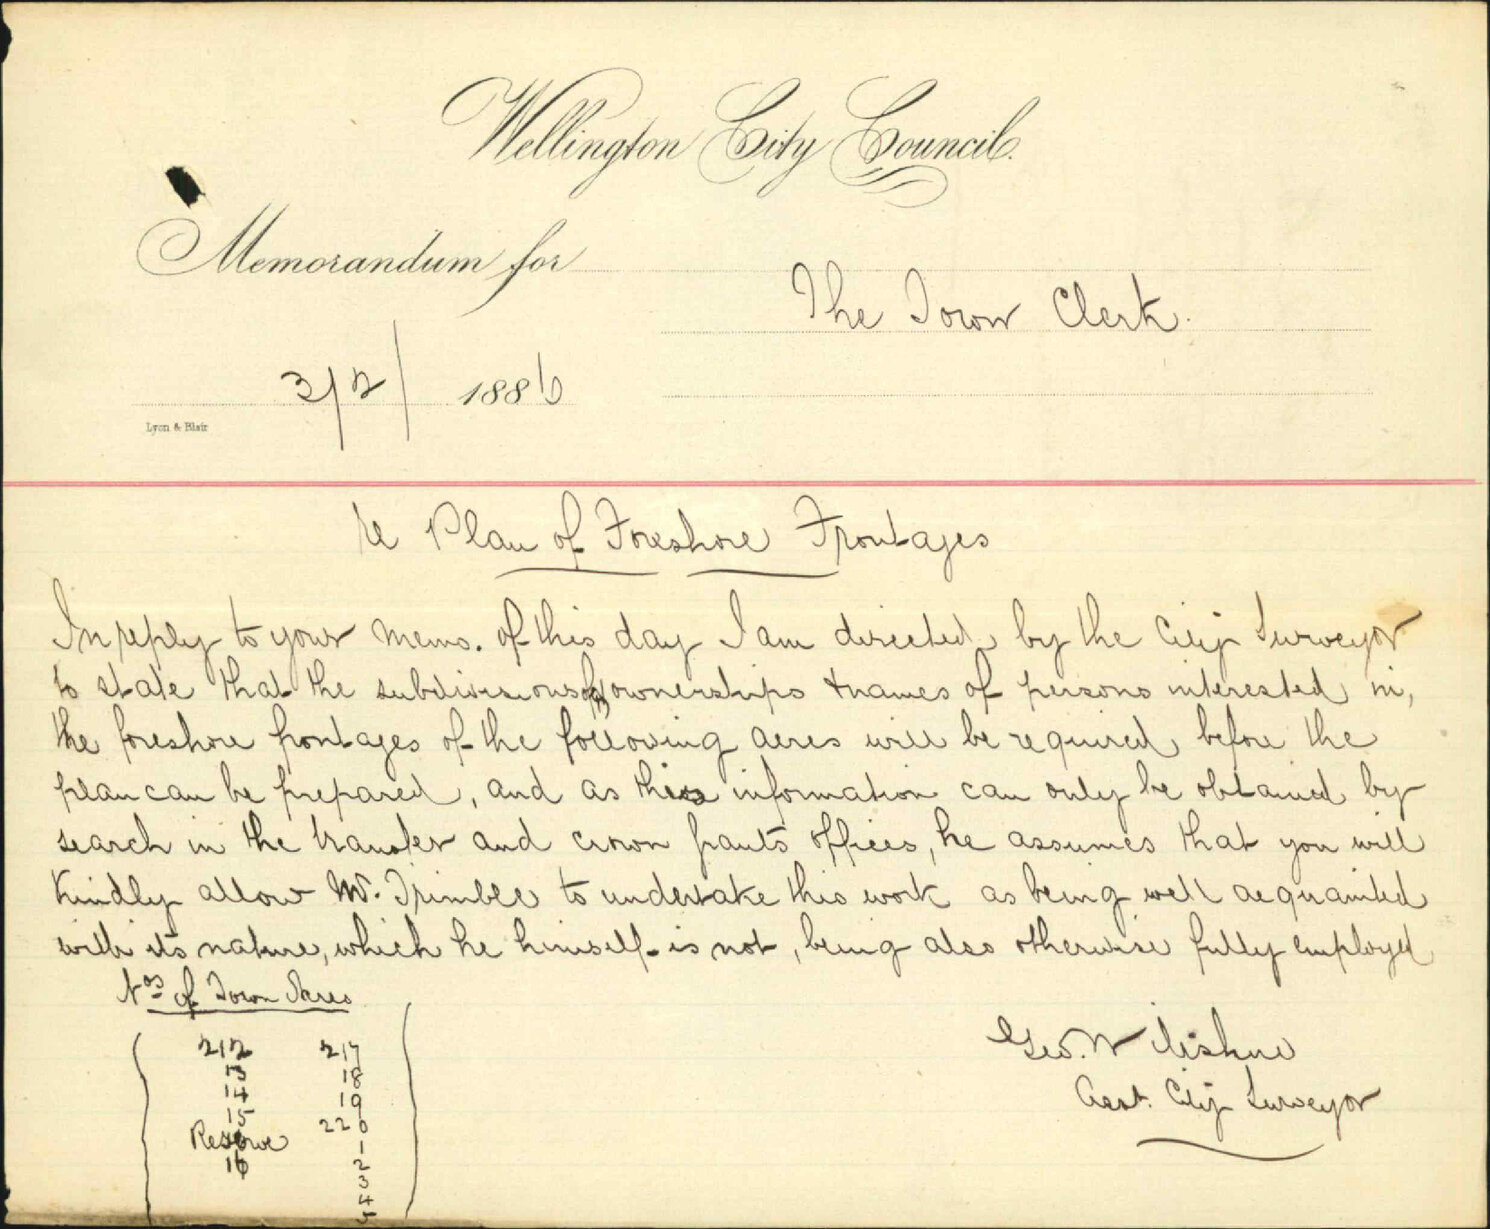 Wellington City Council.
Memorandum for
The Town Clerk.
3/2/ 1886
Lyon & Blair
Re Plan of Foreshore Frontages
In reply to your memo. of this day I am directed by the City Surveyor
to state that the subdivisions of ownerships & names of persons interested in,
the foreshore frontages of the following acres will be required before the
plan can be prepared, and as this information can only be obtained by
search in the transfer and crown grants offices, he assumes that you will
kindly allow Mr. Trimble to undertake this work as being well acquainted
with its nature, which he himself is not, being also otherwise fully employed
Nos of Town Acres
212 217
13 18
14 19
15 220
Reserve 1
16 2
3
4
5
Geo. W
Asst. City Surveyor